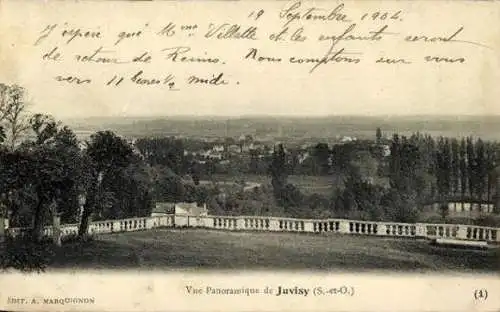 19 Septembre 1904.
J'espère que Mme Villette et les enfants seront
de retour de Reims. Nous comptons sur vous
vers 11 heures 1/2 midi
Vue Panoramique de Juvisy (S.-et-O.)
(1)
EDIT. A. MARQUIGNON